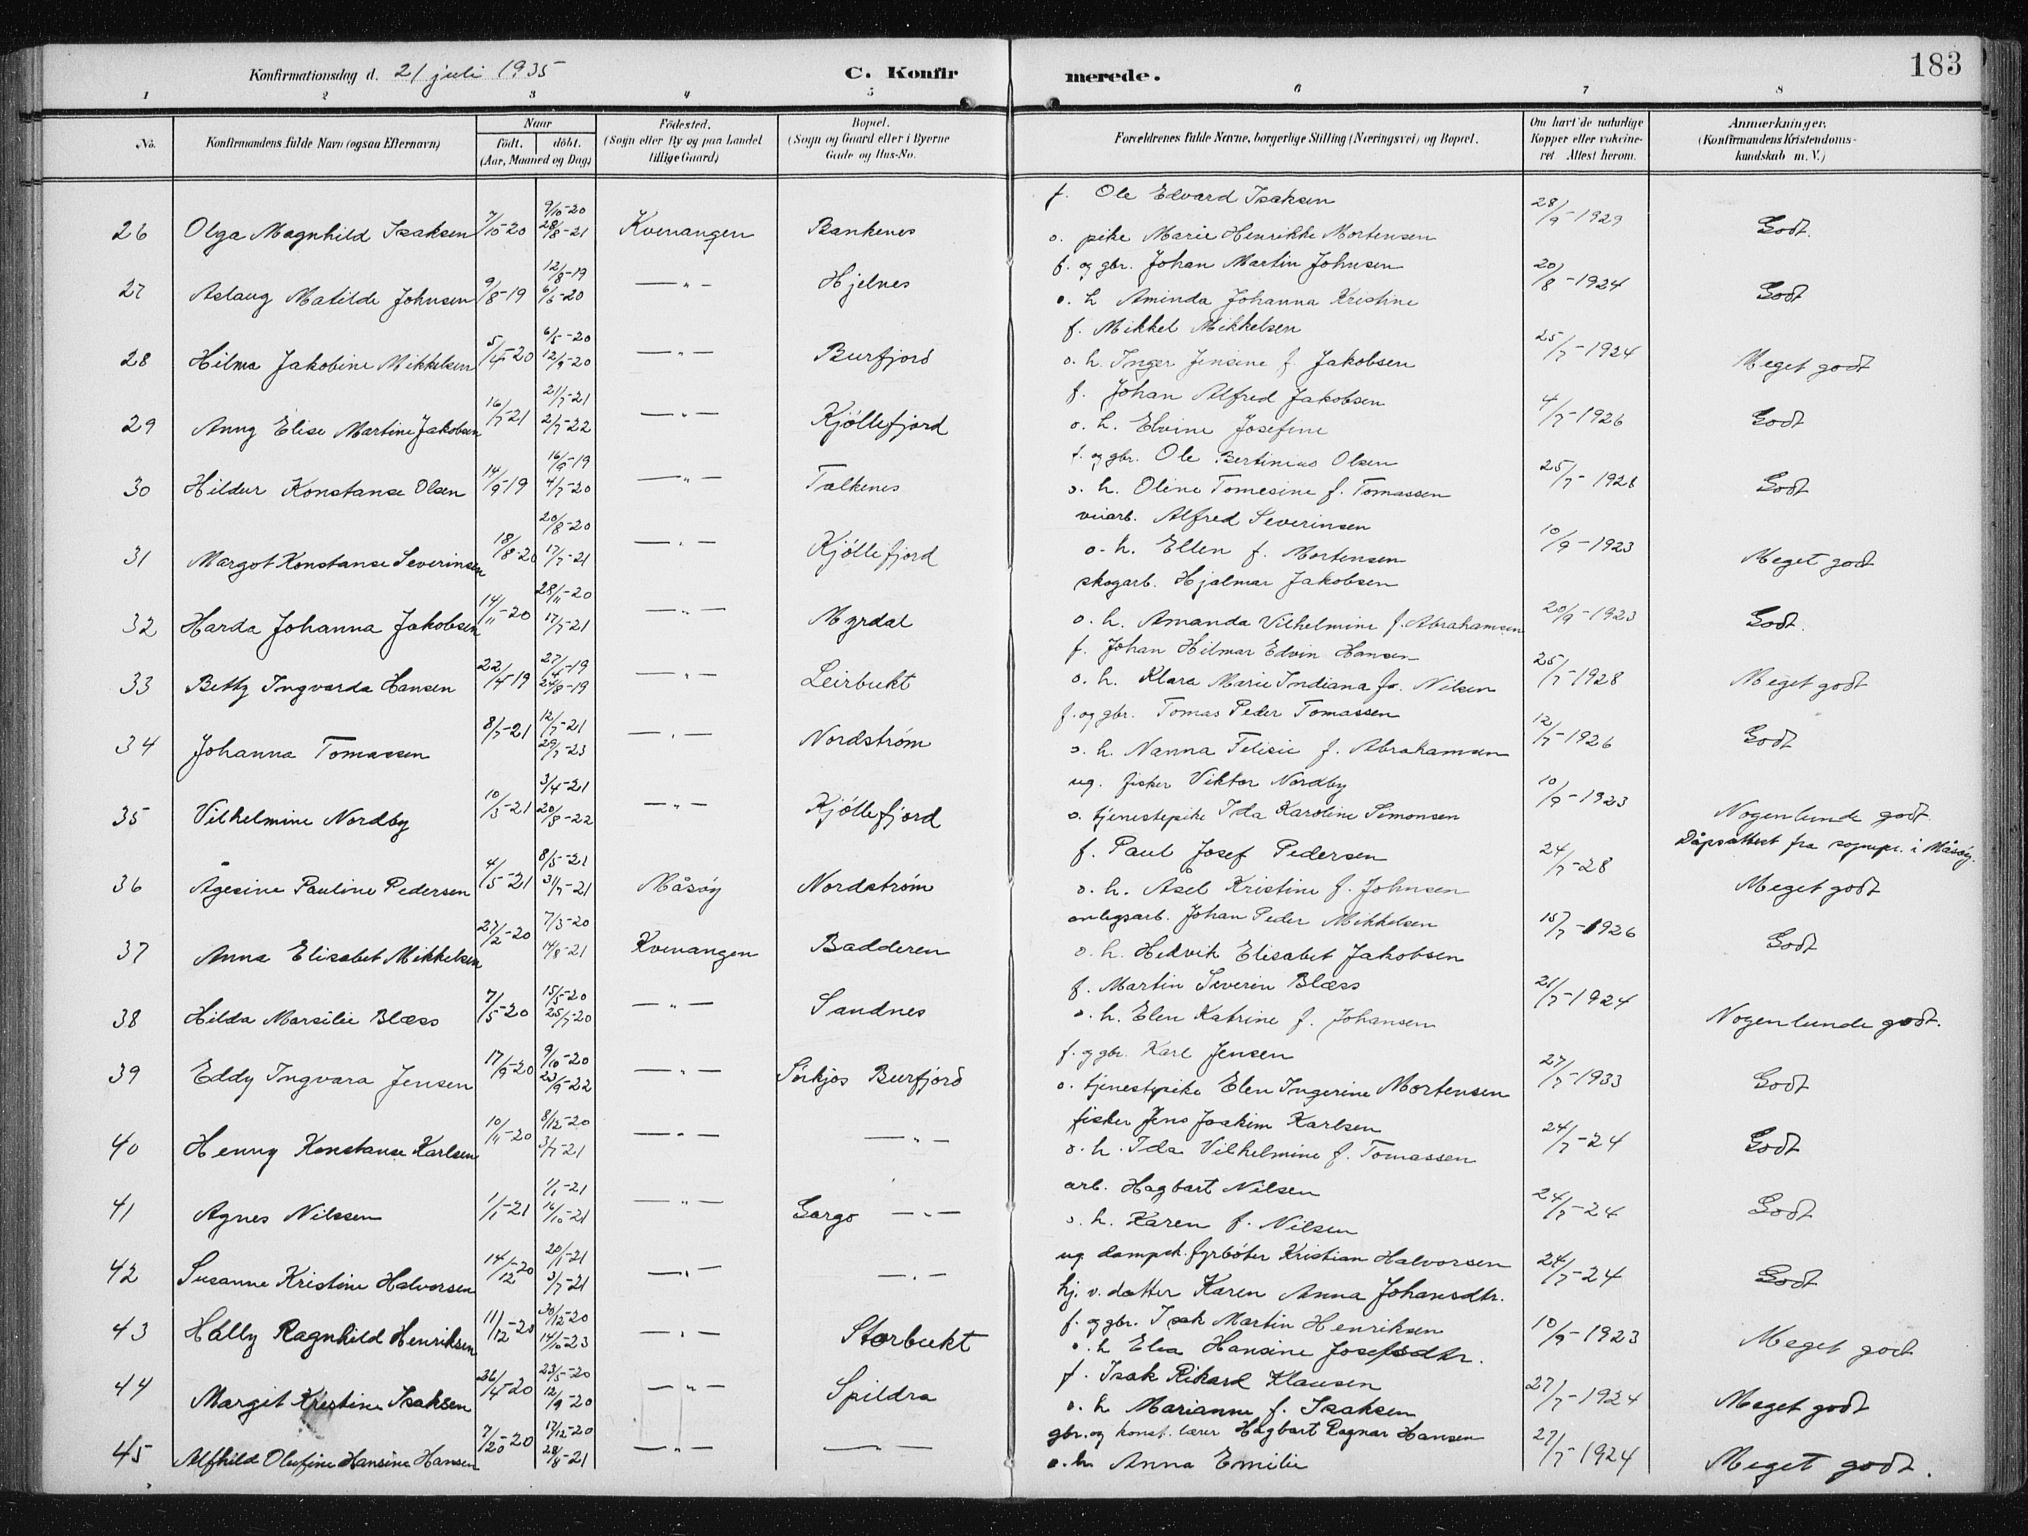 183
Konfirmationsdag d. 21 juli 1935 C. Konfirmerede.
1 2 3 4 5 6 7 8
No. Konfirmandens fulde Navn (ogsaa Efternavn) Naar født. døbt. (Aar, Maaned og Dag) Fødested. (Sogn eller By og paa Landet tillige Gaard) Bopæl. (Sogn og Gaard eller i Byerne Gade og Hus-No. Forældrenes fulde Navne, borgerlige Stilling (Næringsvei) og Bopæl. Om havt de naturlige Kopper eller vakcineret Attest herom. Anmærkninger. (Konfirmandens Kristendomskundskab m. V.)
9/10-20 f. Ole Edvard Isaksen
26 Olga Magnhild Isaksen 7/10-20 28/8-21 Kvenangen Bankenes o. pike Marie Henrikke Mortensen 28/9-1929 Godt.
12/8-19 f. og gbr. Johan Martin Johnsen
27 Aslaug Matilde Johnsen 9/8-19 6/6-20 —"— Hjelnes o. h. Aminda Johanna Kristine 20/8-1924 Godt
6/5-20 f. Mikkel Mikkelsen
28 Hilma Jakobine Mikkelsen 5/4-20 12/9-20 —"— Burfjord o. h. Inger Jensine f. Jakobsen 25/7-1924 Meget godt
21/7-21 f. Johan Alfred Jakobsen
29 Anny Elise Martine Jakobsen 16/7-21 2/7-22 —"— Kjøllefjord o. h. Elvine Josefine 4/7-1926 Godt
16/9-19 f. og gbr. Ole Bertinius Olsen
30 Hildur Konstanse Olsen 14/9-19 4/7-20 —"— Talkenes o. h. Oline Tomesine f. Tomassen 25/7-1928 Godt
20/8-20 veiarb. Alfred Severinsen
31 Margot Konstanse Severinsen 18/8-20 17/7-21 —"— Kjøllefjord o. h. Ellen f. Mortensen 10/9-1923 Meget godt
28/11-20 skogarb. Hjalmar Jakobsen
32 Harda Johanna Jakobsen 14/11-20 17/7-21 —"— Myrdal o. h. Amanda Vilhelmine f. Abrahamsen 20/9-1923 Godt.
27/4-19 f. Johan Hilmar Edvin Hansen
33 Betty Ingvarda Hansen 22/4-19 24/8-19 —"— Leirbukt o. h. Klara Marie Indiana f. Nilsen 25/7-1928 Meget godt
12/7-21 f. og gbr. Tomas Peder Tomassen
34 Johanna Tomassen 8/7-21 29/7-23 —"— Nordstrøm o. h. Nanna Felisie f. Abrahamsen 12/7-1926 Godt
3/4-21 ug. fisker Viktor Nordby
35 Vilhelmine Nordby 10/3-21 20/8-22 —"— Kjøllefjord o. tjenestepike Ida Karoline Simonsen 10/9-1923 Nogenlunde godt.
8/5-21 f. Paul Josef Pedersen Dåpsattest fra sognepr. i Måsøy.
36 Agesine Pauline Pedersen 4/5-21 31/7-21 Måsøy Nordstrøm o. h. Asel Kristine f. Johnsen 24/7-28 Meget godt
7/3-20 anlegsarb. Johan Peder Mikkelsen
37 Anna Elisabet Mikkelsen 27/2-20 14/8-21 Kvenangen Badderen o. h. Hedvik Elisabet Jakobsen 15/7-1926 Godt
15/5-20 f. Martin Severin Blæss
38 Hilda Marsilie Blæss 7/5-20 25/7-20 —"— Sandnes o. h. Elen Katrine f. Johansen 21/7-1924 Nogenlunde godt.
9/10-20 f. og gbr. Karl Jensen
39 Eddy Ingvara Jensen 17/9-20 23/9-22 —"— Sörkjos Burfjord o. tjenestepike Elen Ingerine Mortensen 27/7-1933 Godt
8/12-20 fisker Jens Joakim Karlsen
40 Henny Konstanse Karlsen 10/11-20 3/7-21 —"— —"— o. h. Ida Vilhelmine f. Tomassen 24/7-24 Godt
1/1-21 arb. Hagbart Nilsen
41 Agnes Nilssen 1/1-21 16/10-21 —"— Gargo —"— o. h. Karen f. Nilsen 24/7-24 Godt
20/1-21 ug dampsk. fyrbøter Kristian Halvorsen
42 Susanne Kristine Halvorsen 14/12-20 3/7-21 —"— —"— hj. v. datter Karen Anna Johansdtr. 24/7-24 Godt
30/12-20 f. og gbr. Isak Martin Henriksen
43 Hally Ragnhild Henriksen 11/12-20 14/10-23 —"— Storbukt o. h Elea Hansine Josefsdtr. 10/9-1923 Meget godt
23/5-20 f. Isak Rikard Klausen
44 Margit Kristine Isaksen 26/4-20 12/9-20 —"— Spildra o. h Marianne f. Isaksen 27/7-1924 Meget godt
17/12-20 gbr. og konst. lærer Hagbart Ragnar Hansen
45 Alfhild Olufine Hansine Hansen 7/20-20 28/8-21 —"— —"— o. h. Anna Emilie 27/7-1924 Meget godt.